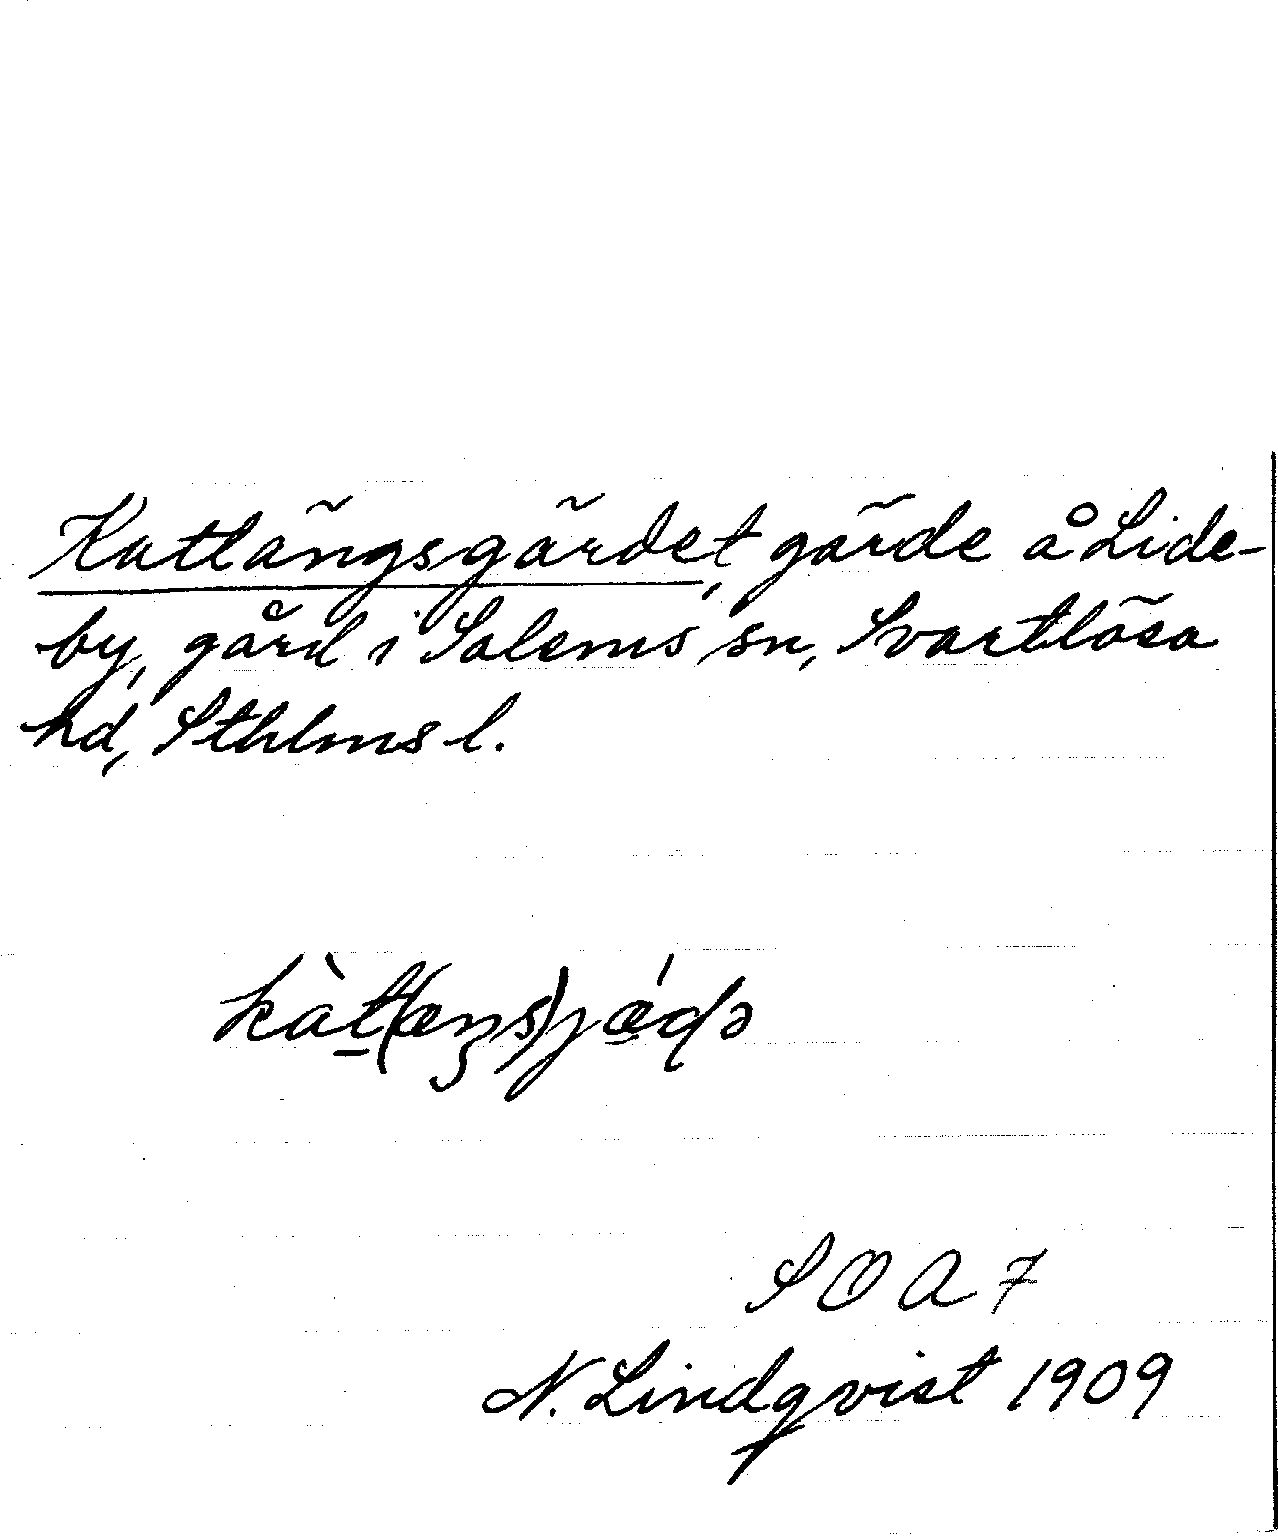 Kattängsgärdet, gärde å Lide-
by, gård i Salems sn, Svartlösa
hd, Sthlms l.
kàt(æŋs)jǽɖə
SOA 7
N. Lindqvist 1909